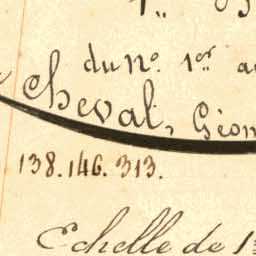 du n.º 1.er a
Cheval, Géom
138.146.313.
Echelle de 1